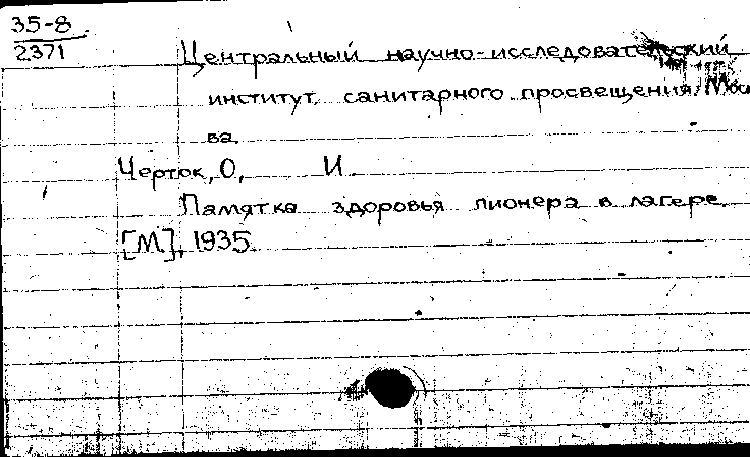 35-8
2371
Центральный научно-исследовательский
институт санитарного просвещения, Мос
ва.
Черток, О, И.
Памятка здоровья пионера в лагере.
[М], 1935.